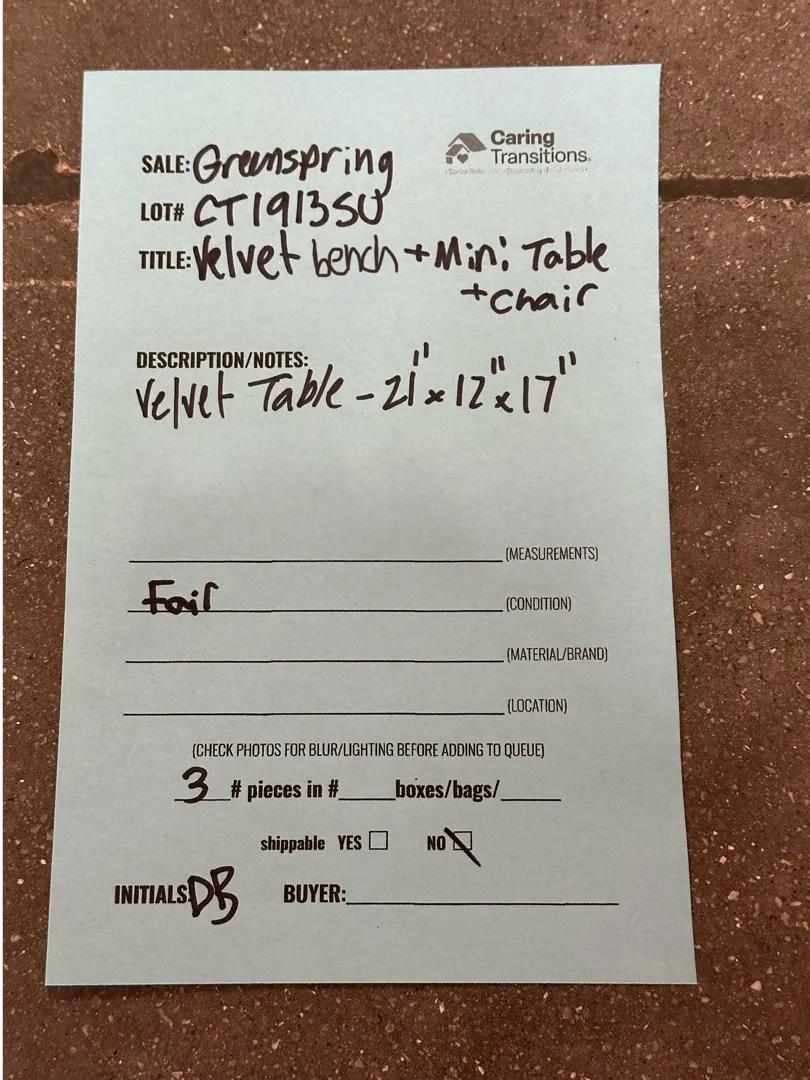 Caring
Transitions®
SALE: Greenspring
LOT# CT1913SU
TITLE: Velvet bench + Mini Table
+ chair
DESCRIPTION/NOTES:
Velvet Table - 21" x 12" x 17"
(MEASUREMENTS)
Fair (CONDITION)
(MATERIAL/BRAND)
(LOCATION)
(CHECK PHOTOS FOR BLUR/LIGHTING BEFORE ADDING TO QUEUE)
3 # pieces in #____ boxes/bags/____
shippable YES NO
INITIALS DB BUYER: